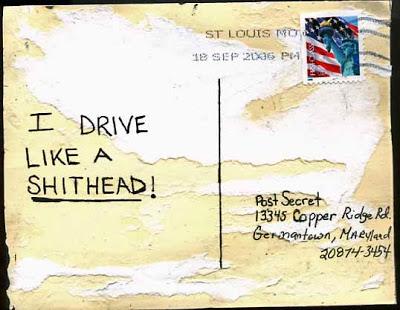 ST LOUIS MO
18 SEP 2006 PM
I DRIVE
LIKE A
SHITHEAD!
Post Secret
13345 Copper Ridge Rd.
Germantown, MARyland
20874-3454